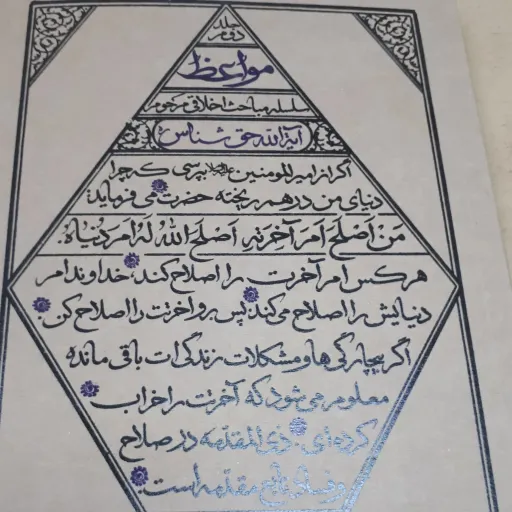 جلد دوم
مواعظ
سلسله مباحث اخلاقی مرحوم
آیة الله حق شناس
اگر از امیرالمومنین علیه‌السلام بپرسی که چرا
دنیای من درهم ریخته حضرت می فرماید:
مَن اَصلَحَ اَمرَ آخِرَتِهِ اَصلَحَ اللهُ لَهُ اَمرَ دُنیاهُ.
هر کس امر آخرت را اصلاح کند، خداوند امر
دنیایش را اصلاح می کند. پس برو آخرتت را اصلاح کن.
اگر بیچارگی ها و مشکلات زندگی ات باقی مانده
معلوم می شود که آخرتت را خراب
کرده ای. ذی المقدمه در صلاح
و فساد تابع مقدمه است.